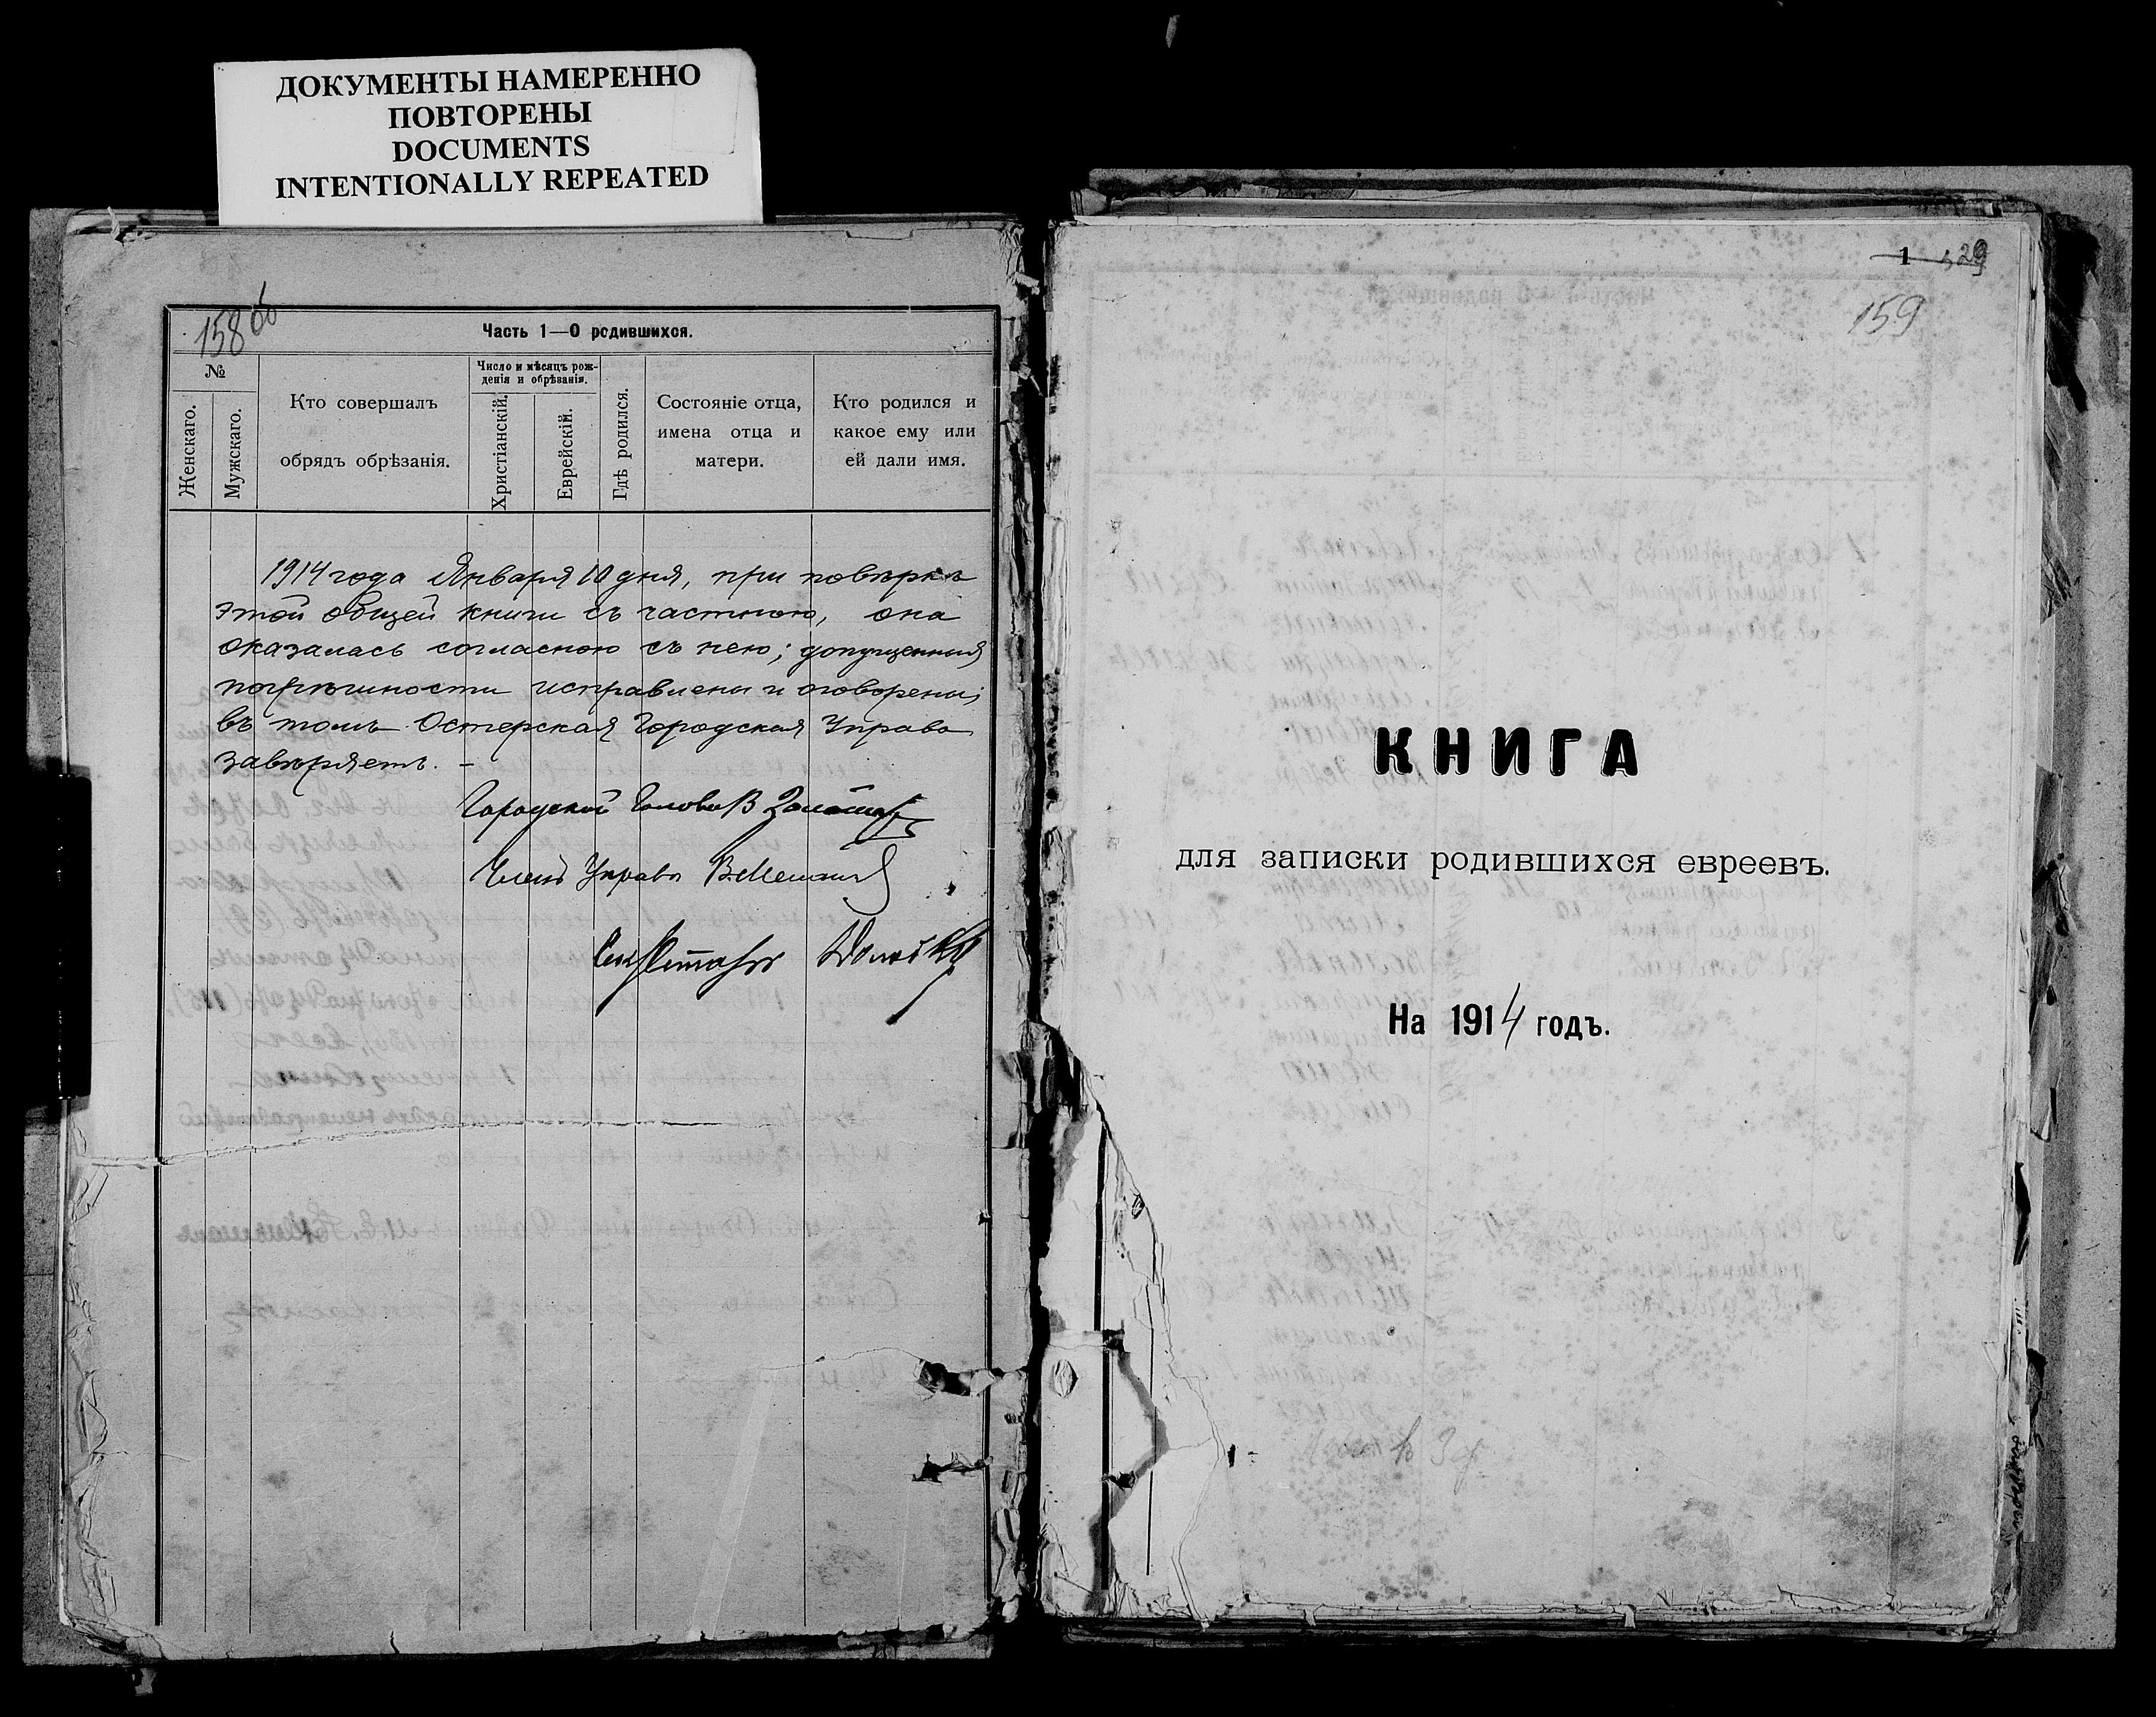 ДОКУМЕНТЫ НАМЕРЕННО
ПОВТОРЕНЫ
DOCUMENTS
INTENTIONALLY REPEATED
158 об
Часть 1—О родившихся.
№
Женскаго.
Мужскаго.
Кто совершалъ
обрядъ обрѣзанія.
Число и мѣсяцъ рож-
денія и обрѣзанія.
Христіанскій.
Еврейскій.
Гдѣ родился.
Состояніе отца,
имена отца и
матери.
Кто родился и
какое ему или
ей дали имя.
1914 года Января 10 дня, при повѣркѣ
этой общей книги съ частною, она
оказалась согласною съ нею; допущенныя
погрѣшности исправлены и оговорены;
въ томъ Остерская Городская Управа
завѣряетъ. –
Городской Голова В
Членъ Управы
Секретарь
1 29
159
КНИГА
для записки родившихся евреевъ.
На 1914 годъ.